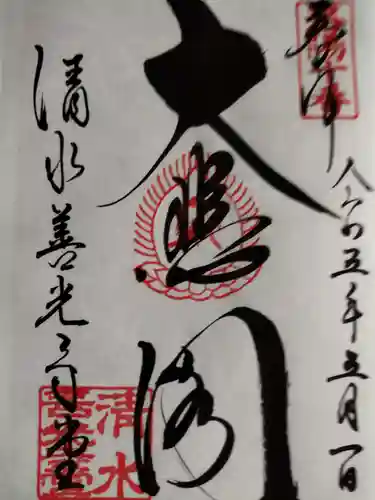 奉拝
洛陽十番
令和五年五月一日
大悲閣
清水善光寺堂
清水